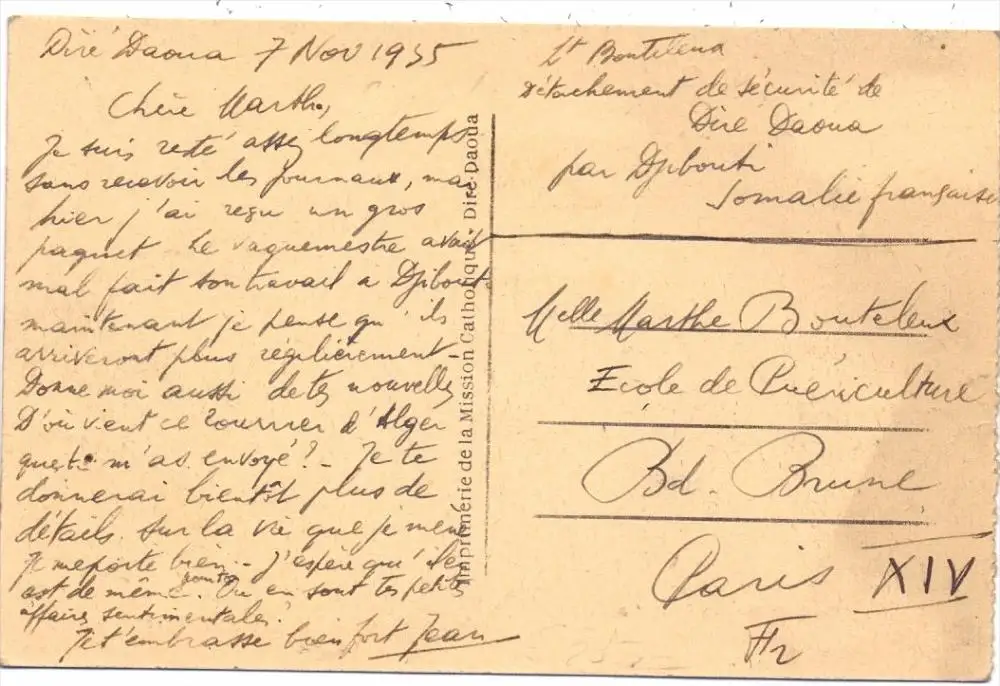 Diré Daoua 7 Nov 1935
Chère Marthe,
Je suis resté assez longtemps
sans recevoir les journaux, mais
hier j'ai reçu un gros
paquet. Le vaguemestre avait
mal fait son travail a Djibouti
maintenant je pense qu'ils
arriveront plus régulièrement -
Donne moi aussi de tes nouvelles
D'où vient ce courrier d'Alger
que tu m'as envoyé? - Je te
donnerai bientôt plus de
détails sur la vie que je mène
Je me porte bien - J'espère qu'il en
est de même pour toi. Où en sont tes petites
affaires sentimentales?
Je t'embrasse bien fort Jean
Imprimerie de la Mission Catholique - Diré-Daoua
Lt Bouteleux
Détachement de sécurité de
Diré Daoua
par Djibouti
Somalie française
Melle Marthe Bouteleux
Ecole de Puériculture
Bd. Brune
Paris XIV